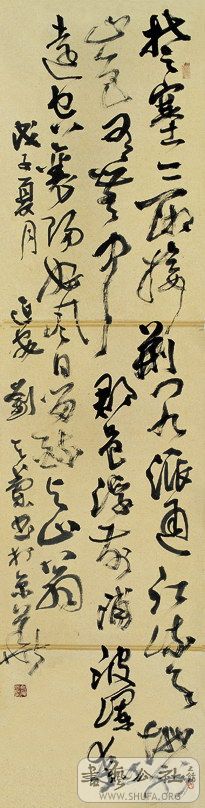 楚塞三湘接荆门九派通江流天地外
山色有無中郡邑浮前浦波澜动
遠空襄陽好風日留醉与山翁
戊子夏月 劉 書於京華
書藝公社
WWW.SHUFA.ORG